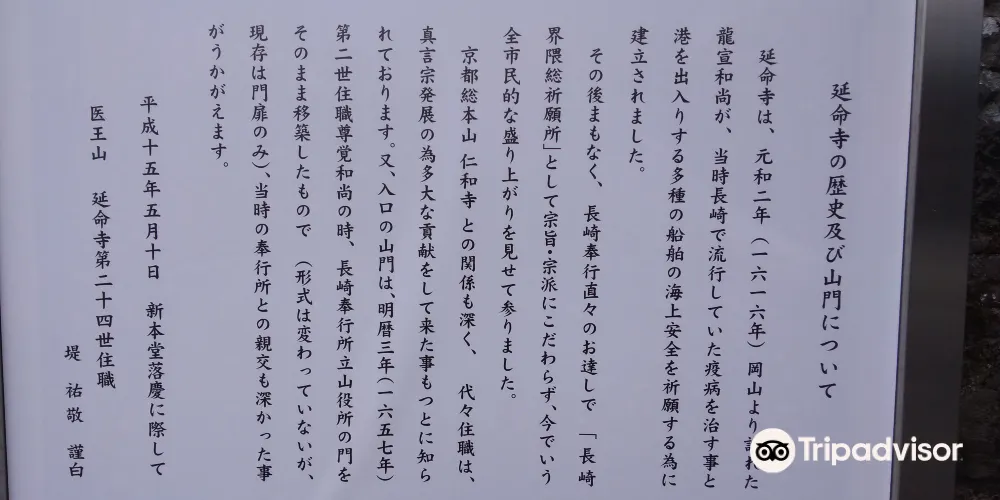 延命寺の歴史及び山門について
延命寺は、元和二年（一六一六年）岡山より訪れた
龍宣和尚が、当時長崎で流行していた疫病を治す事と
港を出入りする多種の船舶の海上安全を祈願する為に
建立されました。
その後まもなく、長崎奉行直々のお達しで「長崎
界隈総祈願所」として宗旨・宗派にこだわらず、今でいう
全市民的な盛り上がりを見せて参りました。
京都総本山 仁和寺 との関係も深く、代々住職は、
真言宗発展の為多大な貢献をして来た事もつとに知ら
れております。又、入口の山門は、明暦三年（一六五七年）
第二世住職尊覚和尚の時、長崎奉行所立山役所の門を
そのまま移築したもので（形式は変わっていないが、
現存は門扉のみ）、当時の奉行所との親交も深かった事
がうかがえます。
平成十五年五月十日 新本堂落慶に際して
医王山 延命寺第二十四世住職
堤 祐敬 謹白
Tripadvisor